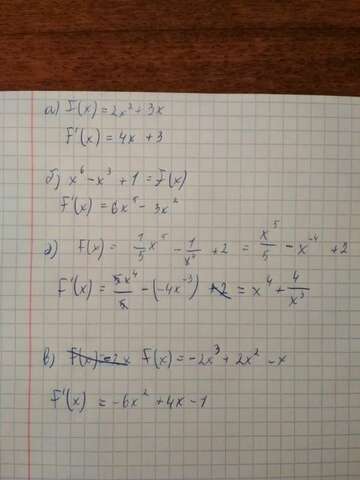 а) F(x) = 2x² + 3x
F'(x) = 4x + 3
б) x⁶ - x³ + 1 = F(x)
F'(x) = 6x⁵ - 3x²
д) F(x) = 1/5 x⁵ - 1/x⁴ + 2 = x⁵/5 - x⁻⁴ + 2
F'(x) = 5x⁴/5 - (-4x⁻³) + 2 = x⁴ + 4/x³
в) F(x) = 2x F(x) = -2x³ + 2x² - x
F'(x) = -6x² + 4x - 1